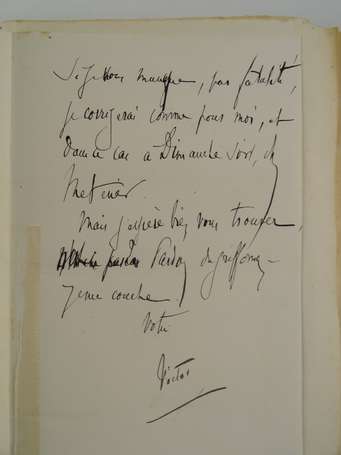 Si je vous manque, par fatalité,
je corrigerai comme pour moi, et
dans ce cas à Dimanche soir, chez
Metivier.
Mais j'espère bien vous trouver,
Pardon du griffonnage
je me couche
Votre